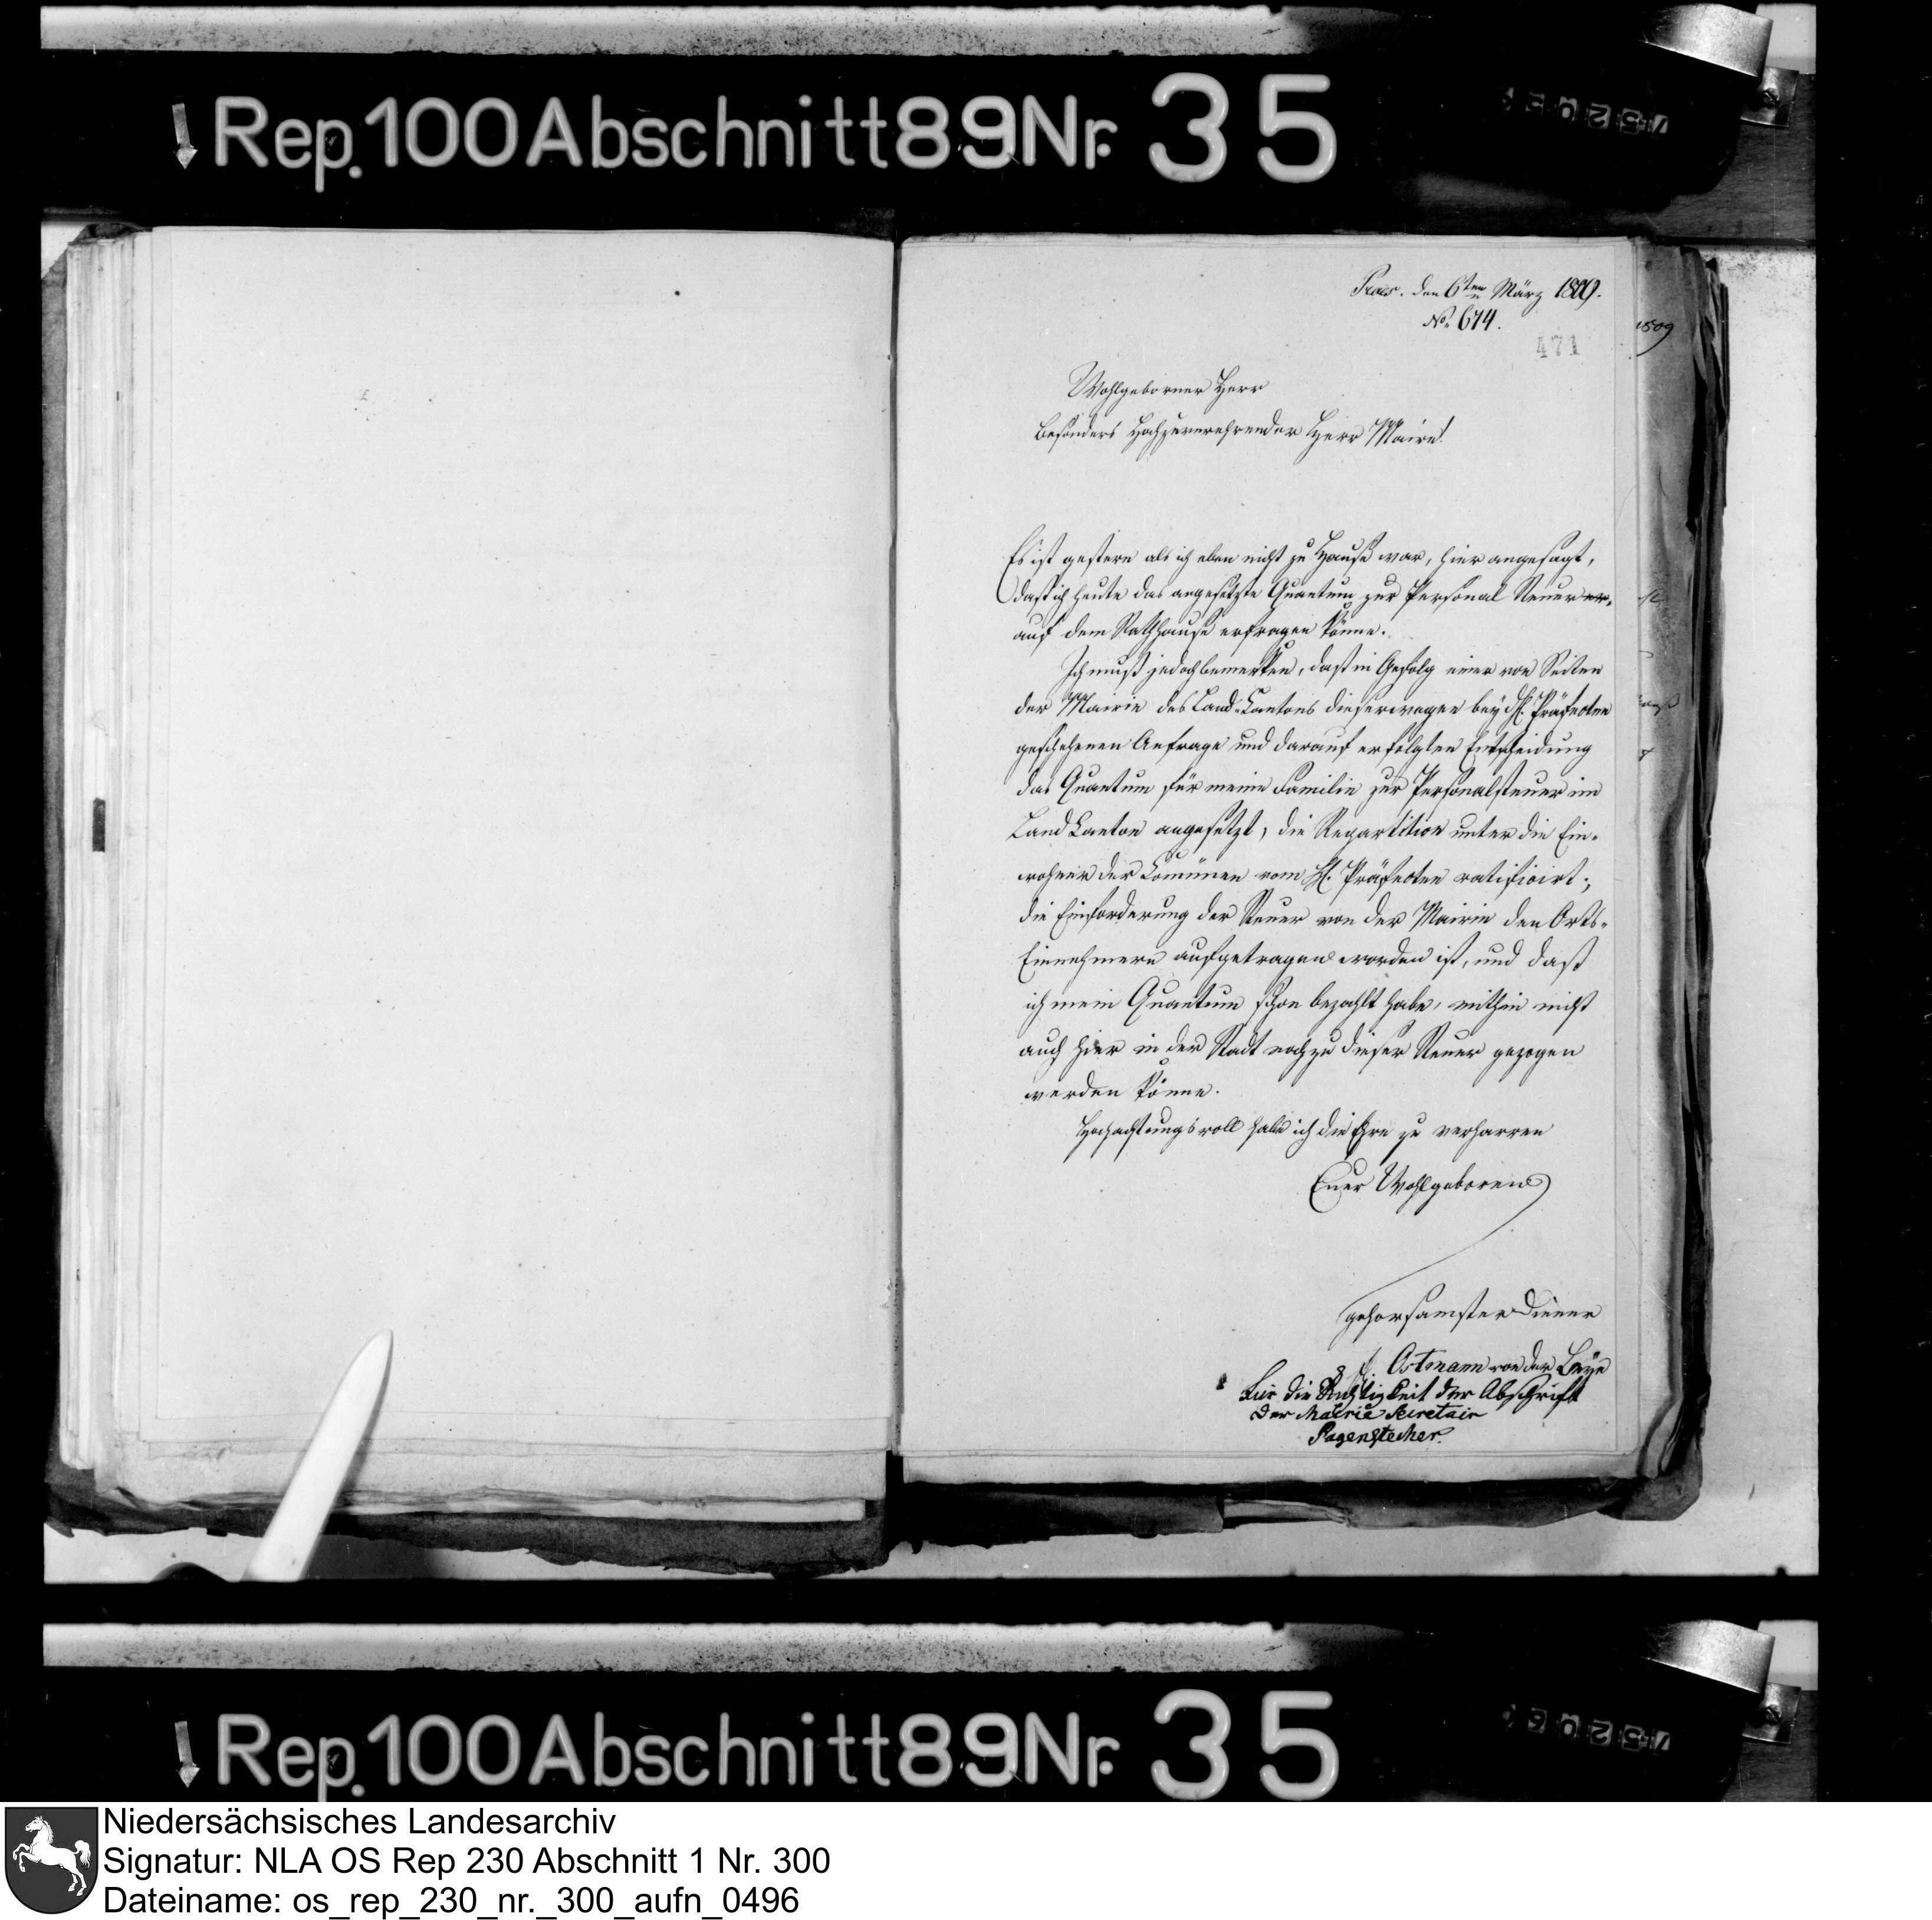 Rep. 100 Abschnitt 89 Nr. 35
Praes. den 6ten März 1809.
No. 674.
471
1809
Wohlgeborner Herr
Besonders Hochzuverehrender Herr Maire!
Es ist gestern als ich eben nicht zu Hauße war, hier angesagt,
daß ich heute das angesetzte Quantum zur Personal Steuer
auf dem Rathhause erfragen könne.
Ich muß jedoch bemerken, daß in Gefolg einer von Seiten
der Mairie des Land-Cantons dieserwegen bey dH. Präfecten
geschehenen Anfrage und darauf erfolgten Entscheidung
das Quantum für meine Familie zur Personalsteuer im
Land Canton angesetzt, die Repartition unter die Ein-
wohner der Communen vom H. Präfecten ratificirt;
die Einforderung der Steuer von der Mairie den Orts-
Einnehmern aufgetragen worden ist, und daß
ich mein Quantum schon bezahlt habe, mithin nicht
auch hier in der Stadt noch zu dieser Steuer gezogen
werden könne.
Hochachtungsvoll habe ich die Ehre zu verharren
Euer Wohlgeboren
gehorsamster Diener
Ostmann von der Leye
Für die Richtigkeit der Abschrift
Der Mairie Secretair
Pagenstecher.
Rep. 100 Abschnitt 89 Nr. 35
Niedersächsisches Landesarchiv
Signatur: NLA OS Rep 230 Abschnitt 1 Nr. 300
Dateiname: os_rep_230_nr._300_aufn_0496